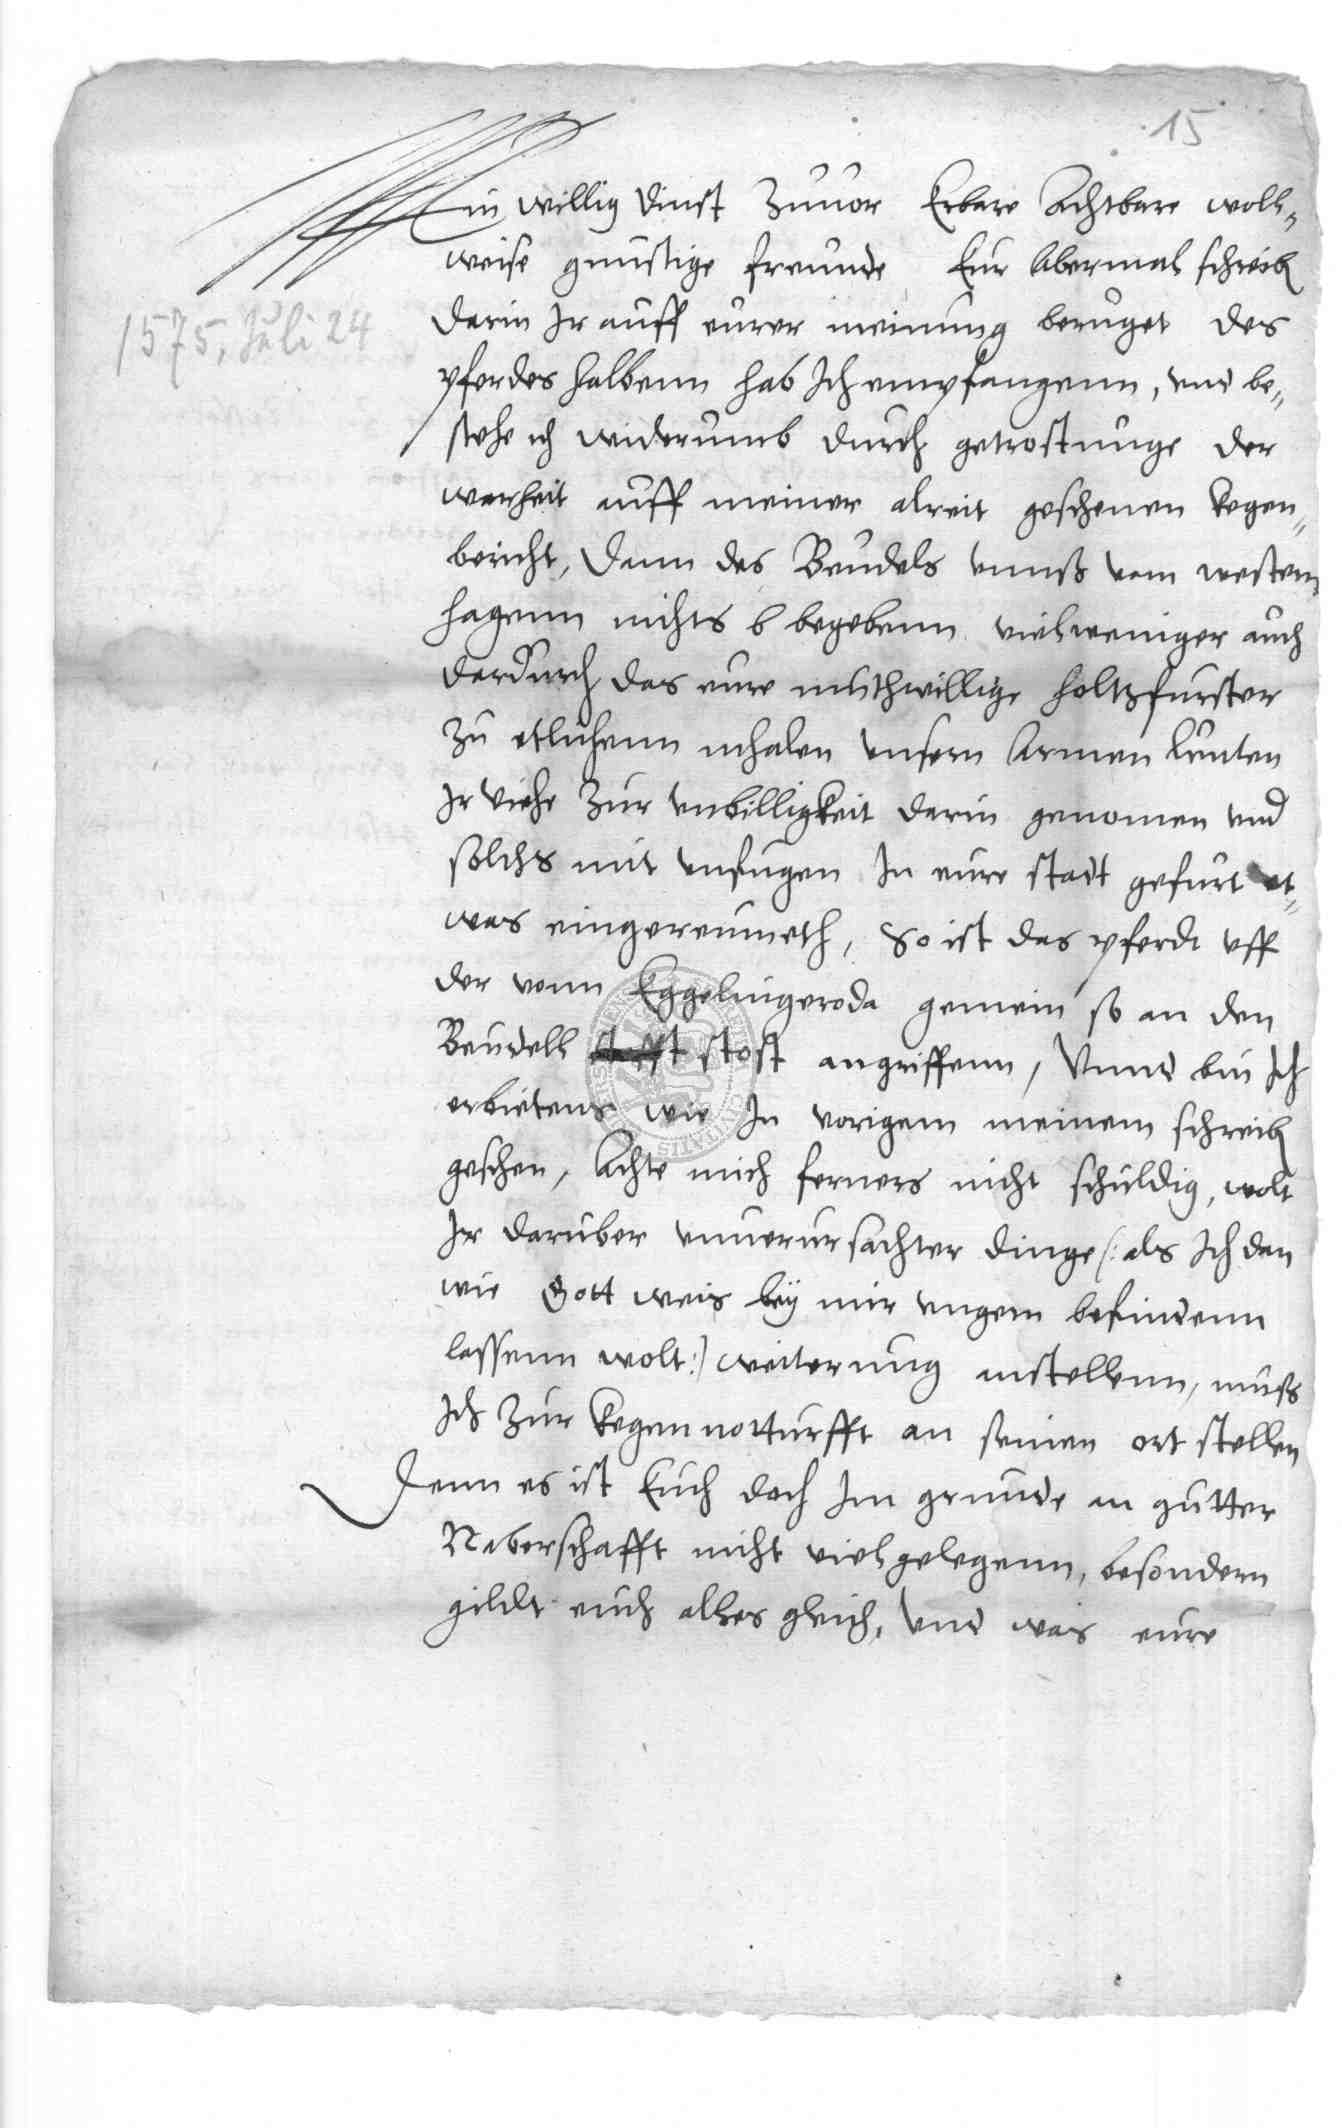 15
Mein willig dinst zuuor Erbare Achtbare woll„
weise gunstige freunde Eur Abermal schreib
1575, Juli 24
darin Jr auff eurer meinung beruget des
pferdes halbenn hab Ich empfangenn, vnd be„
stehe ich widerumb durch getrostunge der
warheit auff meiner alreit geschenen kegen„
bericht, dann des Beudels vnnß vam western„
hagenn nichts b begebenn vielweniger auch
dardurch das eure muthwillige holtzfurster
zu etlichenn mhalen vnsern Armen leuten
Jr viehe zur vnbilligkeit darin genomen vnd
solchs mit vnfugen In eure stadt gefurt et„
was eingereumeth, So ist das pferdt vff
der vonn Eggelingeroda gemein so an den
Beudell stost angriffenn, Vnnd bin Ich
erbietens wie In vorigem meinem schreib
geschen, Achte mich ferners nicht schuldig, wolt
Ir daruber vnuerursachter dinge (: als Ich dan
wie Gott weis bey mir vngern befindenn
lassenn wolt :) weiterung anstellenn, muß
Ich zur kegennotturfft an seinen ort stellen
Denn es ist Euch doch Im grunde an gutter
Naberschafft nicht viel gelegenn, besondern
gildt euch alles gleich, vnd was eure